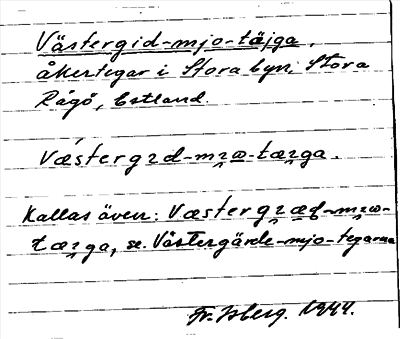 Västergid-mjo-täjga,
åkertegar i Stora byn, Stora
Rågö, Estland.
Væstergıd-mıω-tæıga.
Kallas även: Væstergıæd-mıω-
tæıga, se Västergärde-mjo-tegarna
Fr. Isberg. 1944.